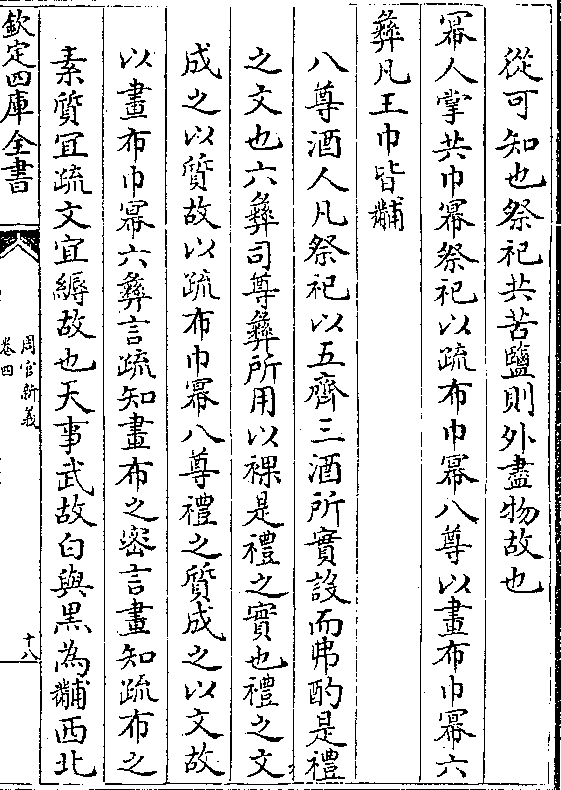 從可知也祭祀共苦鹽則外盡物故也
冪人掌共巾冪祭祀以疏布巾冪八尊以畫布巾冪六
彝凡王巾皆黼
八尊酒人凡祭祀以五齊三酒所實設而弗酌是禮
之文也六彝司尊彝所用以祼是禮之實也禮之文
成之以質故以疏布巾冪八尊禮之質成之以文故
以畫布巾冪六彝言疏知畫布之密言畫知疏布之
素質宜疏文宜縟故也天事武故白與黑為黼西北
欽定四庫全書
周官新義
卷四
十八